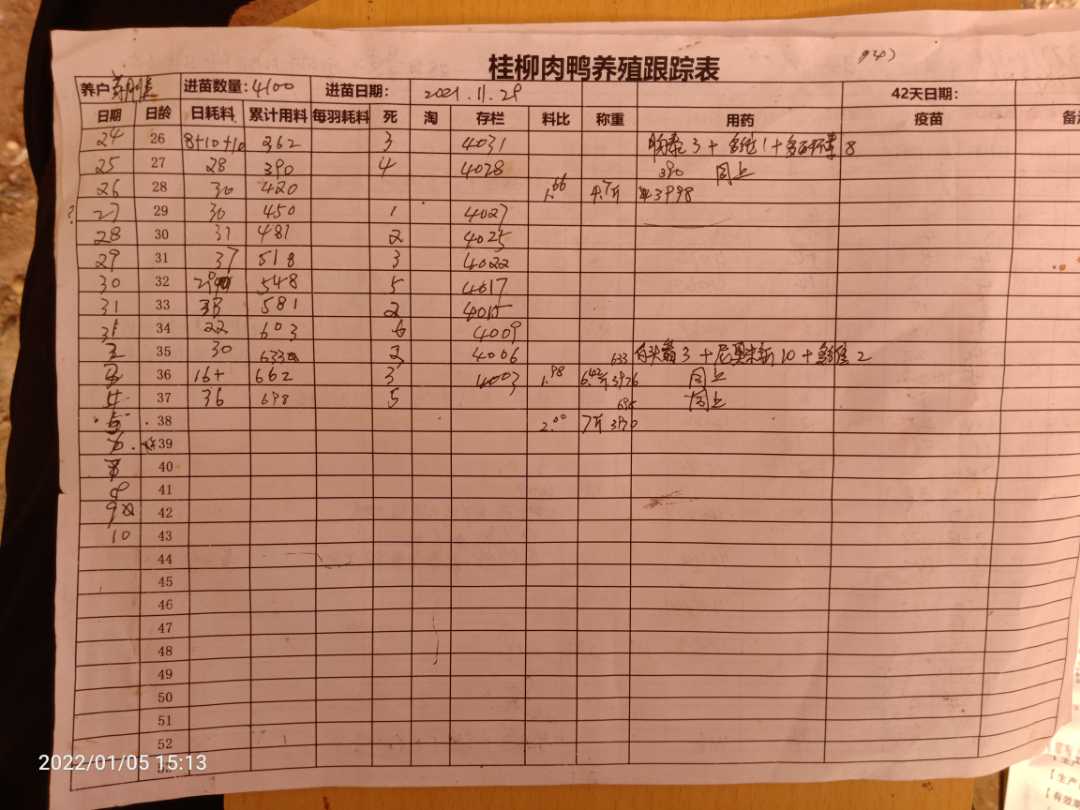 桂柳肉鸭养殖跟踪表
养户 进苗数量:4100 进苗日期: 2021.11.29 42天日期:
日期 日龄 日耗料 累计用料 每羽耗料 死 淘 存栏 料比 称重 用药 疫苗
24 26 8+10+10 362 3 4031 3+多维1+ 8
25 27 28 390 4 4028 390 同上
26 28 30 420 1.66 4.7斤 3998
27 29 30 450 1 4027
28 30 31 481 2 4025
29 31 37 518 3 4022
30 32 548 5 4017
31 33 33 581 2 4015
34 22 603 6 4009
2 35 30 633 2 4006 633 3+ 10+ 2
3 36 16+ 662 3 4003 1.98 3976 同上
4 37 36 698 5 同上
5 38 2.00 7斤 3970
6 39
40
8 41
9 42
10 43
44
45
46
47
48
49
50
51
52
2022/01/05 15:13